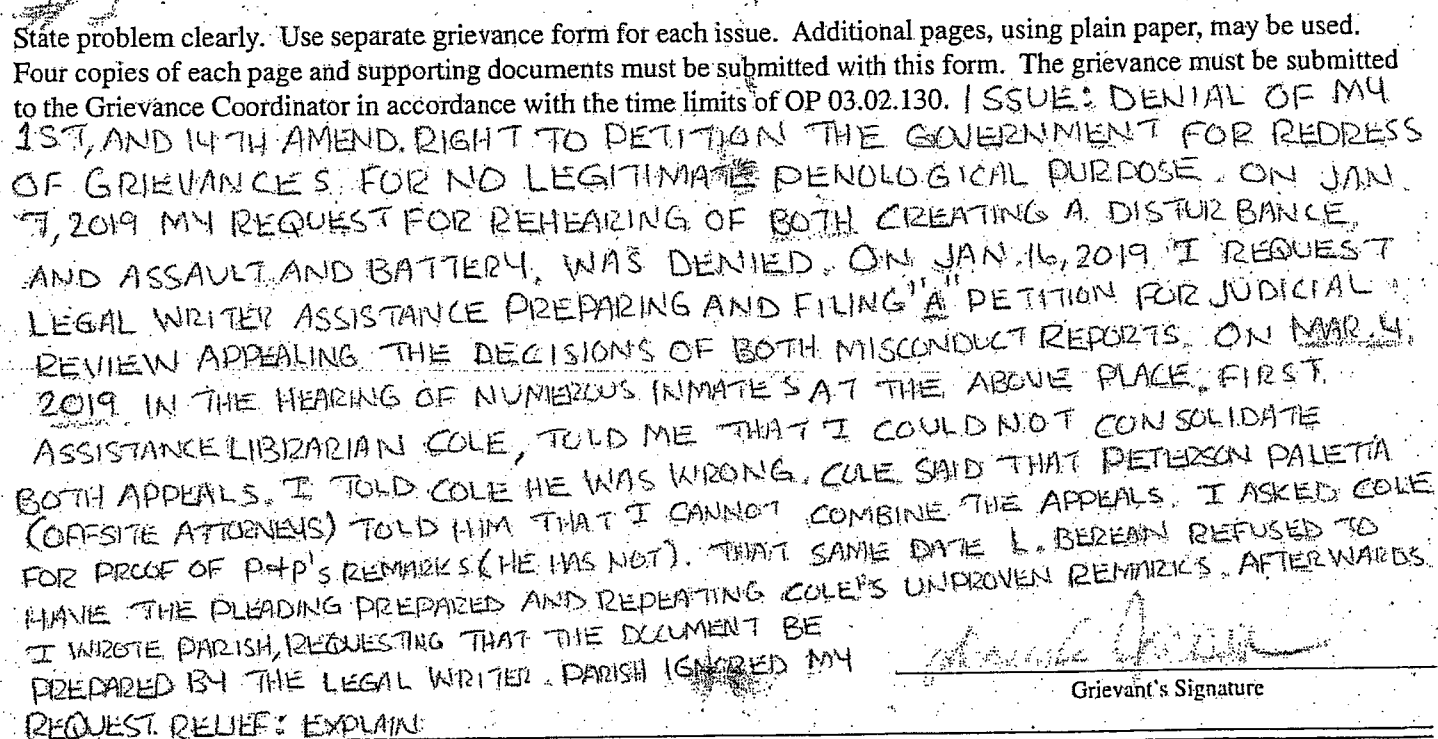 State problem clearly. Use separate grievance form for each issue. Additional pages, using plain paper, may be used.
Four copies of each page and supporting documents must be submitted with this form. The grievance must be submitted
to the Grievance Coordinator in accordance with the time limits of OP 03.02.130. ISSUE: DENIAL OF MY
1ST, AND 14TH AMEND. RIGHT TO PETITION THE GOVERNMENT FOR REDRESS
OF GRIEVANCES FOR NO LEGITIMATE PENOLOGICAL PURPOSE. ON JAN.
7, 2019 MY REQUEST FOR REHEARING OF BOTH CREATING A DISTURBANCE,
AND ASSAULT AND BATTERY, WAS DENIED. ON JAN. 16, 2019 I REQUEST
LEGAL WRITER ASSISTANCE PREPARING AND FILING "A" PETITION FOR JUDICIAL
REVIEW APPEALING THE DECISIONS OF BOTH MISCONDUCT REPORTS. ON MAR. 4,
2019 IN THE HEARING OF NUMEROUS INMATES AT THE ABOVE PLACE, FIRST
ASSISTANCE LIBRARIAN COLE, TOLD ME THAT I COULD NOT CONSOLIDATE
BOTH APPEALS. I TOLD COLE HE WAS WRONG. COLE SAID THAT PETERSON PALETTA
(OFFSITE ATTORNEYS) TOLD HIM THAT I CANNOT COMBINE THE APPEALS. I ASKED COLE
FOR PROOF OF P+P's REMARKS (HE HAS NOT). THAT SAME DATE L. BEREAN REFUSED TO
HAVE THE PLEADING PREPARED AND REPEATING COLE'S UNPROVEN REMARKS. AFTERWARDS
I WROTE PARISH, REQUESTING THAT THE DOCUMENT BE
PREPARED BY THE LEGAL WRITER. PARISH IGNORED MY
Grievant's Signature
REQUEST. RELIEF: EXPLAIN